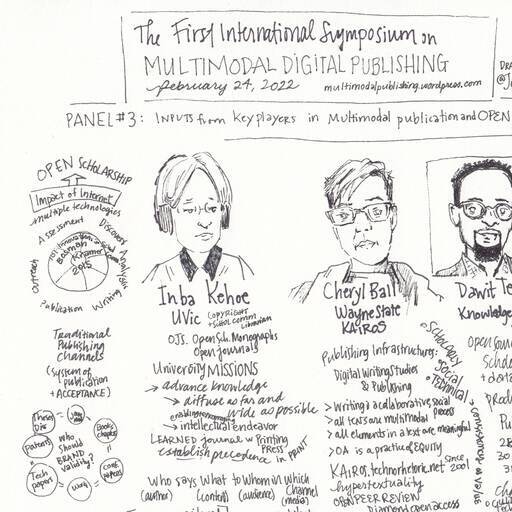 The First International Symposium on
MULTIMODAL DIGITAL PUBLISHING
february 24, 2022
multimodalpublishing.wordpress.com
DRA
PANEL #3: INPUTS from key players in multimodal publication and OPEN
OPEN SCHOLARSHIP
Impact of Internet
+ multiple technologies
Assessment
Discovery
Analysis
Writing
Publication
Outreach
Batman
Kramer
2015
Traditional
Publishing
Channels
(system of
publication
+ ACCEPTANCE)
Thesis
Dis
Books
chapter
Patent
Who
should
BRAND
validity?
Tech
papers
conf
papers
Inba Kehoe
UVic
COPYRIGHT
+ schol comm
Librarian
OJS. Open Sch. Monographs
Open journals
University MISSIONS
→ advance knowledge
→ diffuse as far and
wide as possible
→ intellectual endeavor
LEARNED journal w Printing
PRESS
establish precedence in PRINT
who says what to whom in which
(author) (content) (audience) (channel
media)
Cheryl Ball
Wayne State
KAIROS
Publishing Infrastructures:
Digital Writing Studies
& Publishing
> Writing is a collaborative, social
process
> all texts are multimodal
> all elements in a text are meaningful
> OA is a practice of EQUITY
KAIROS.technorhetoric.net
since
2001
hypertextuality
OPEN PEER REVIEW
Diamond open access
SCHOLARLY
Social
Technical
Dawit Te
Knowledge